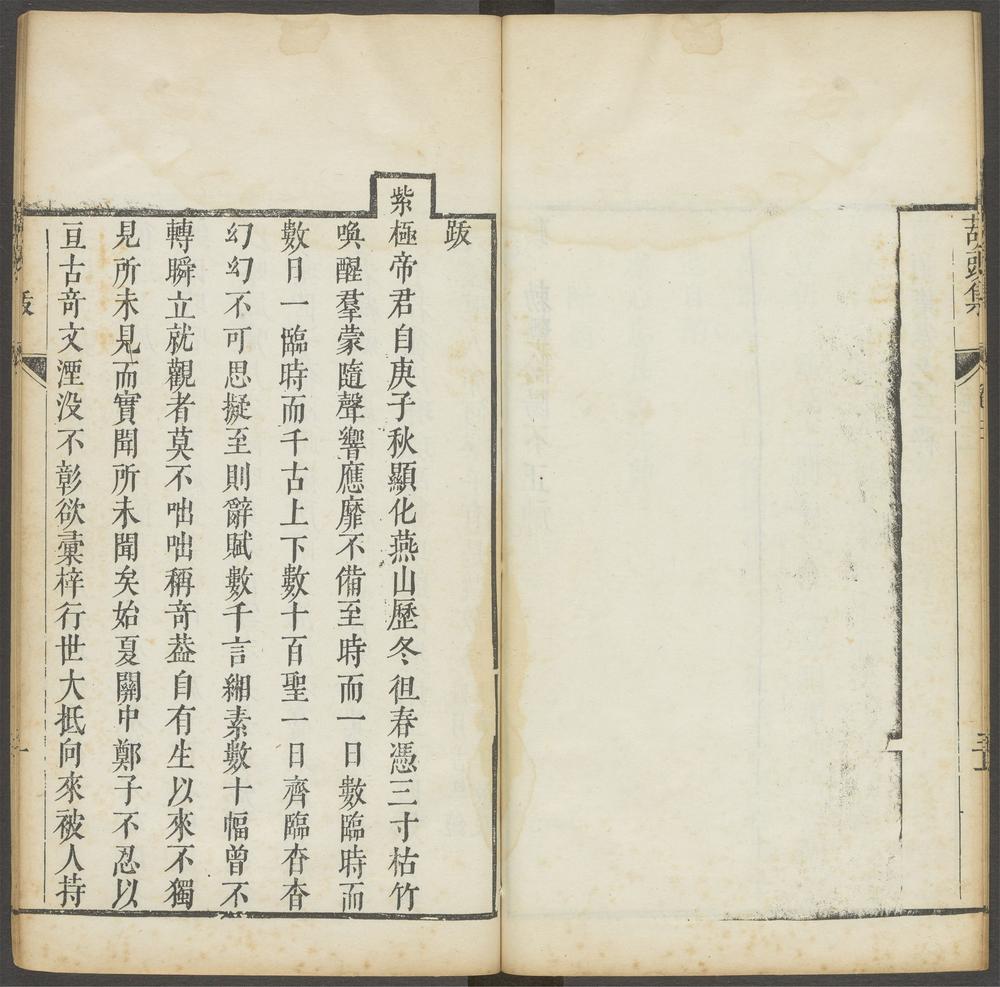 跋
紫極帝君自庚子秋顯化燕山歷冬徂春憑三寸枯竹
喚醒羣蒙隨聲響應靡不備至時而一日數臨時而
數日一臨時而千古上下數十百聖一日齊臨杳杳
幻幻不可思擬至則辭賦數千言緗素數十幅曾不
轉瞬立就觀者莫不咄咄稱奇葢自有生以來不獨
見所未見而實聞所未聞矣始夏關中鄭子不忍以
亘古奇文湮没不彰欲彙梓行世大抵向來被人持
跋